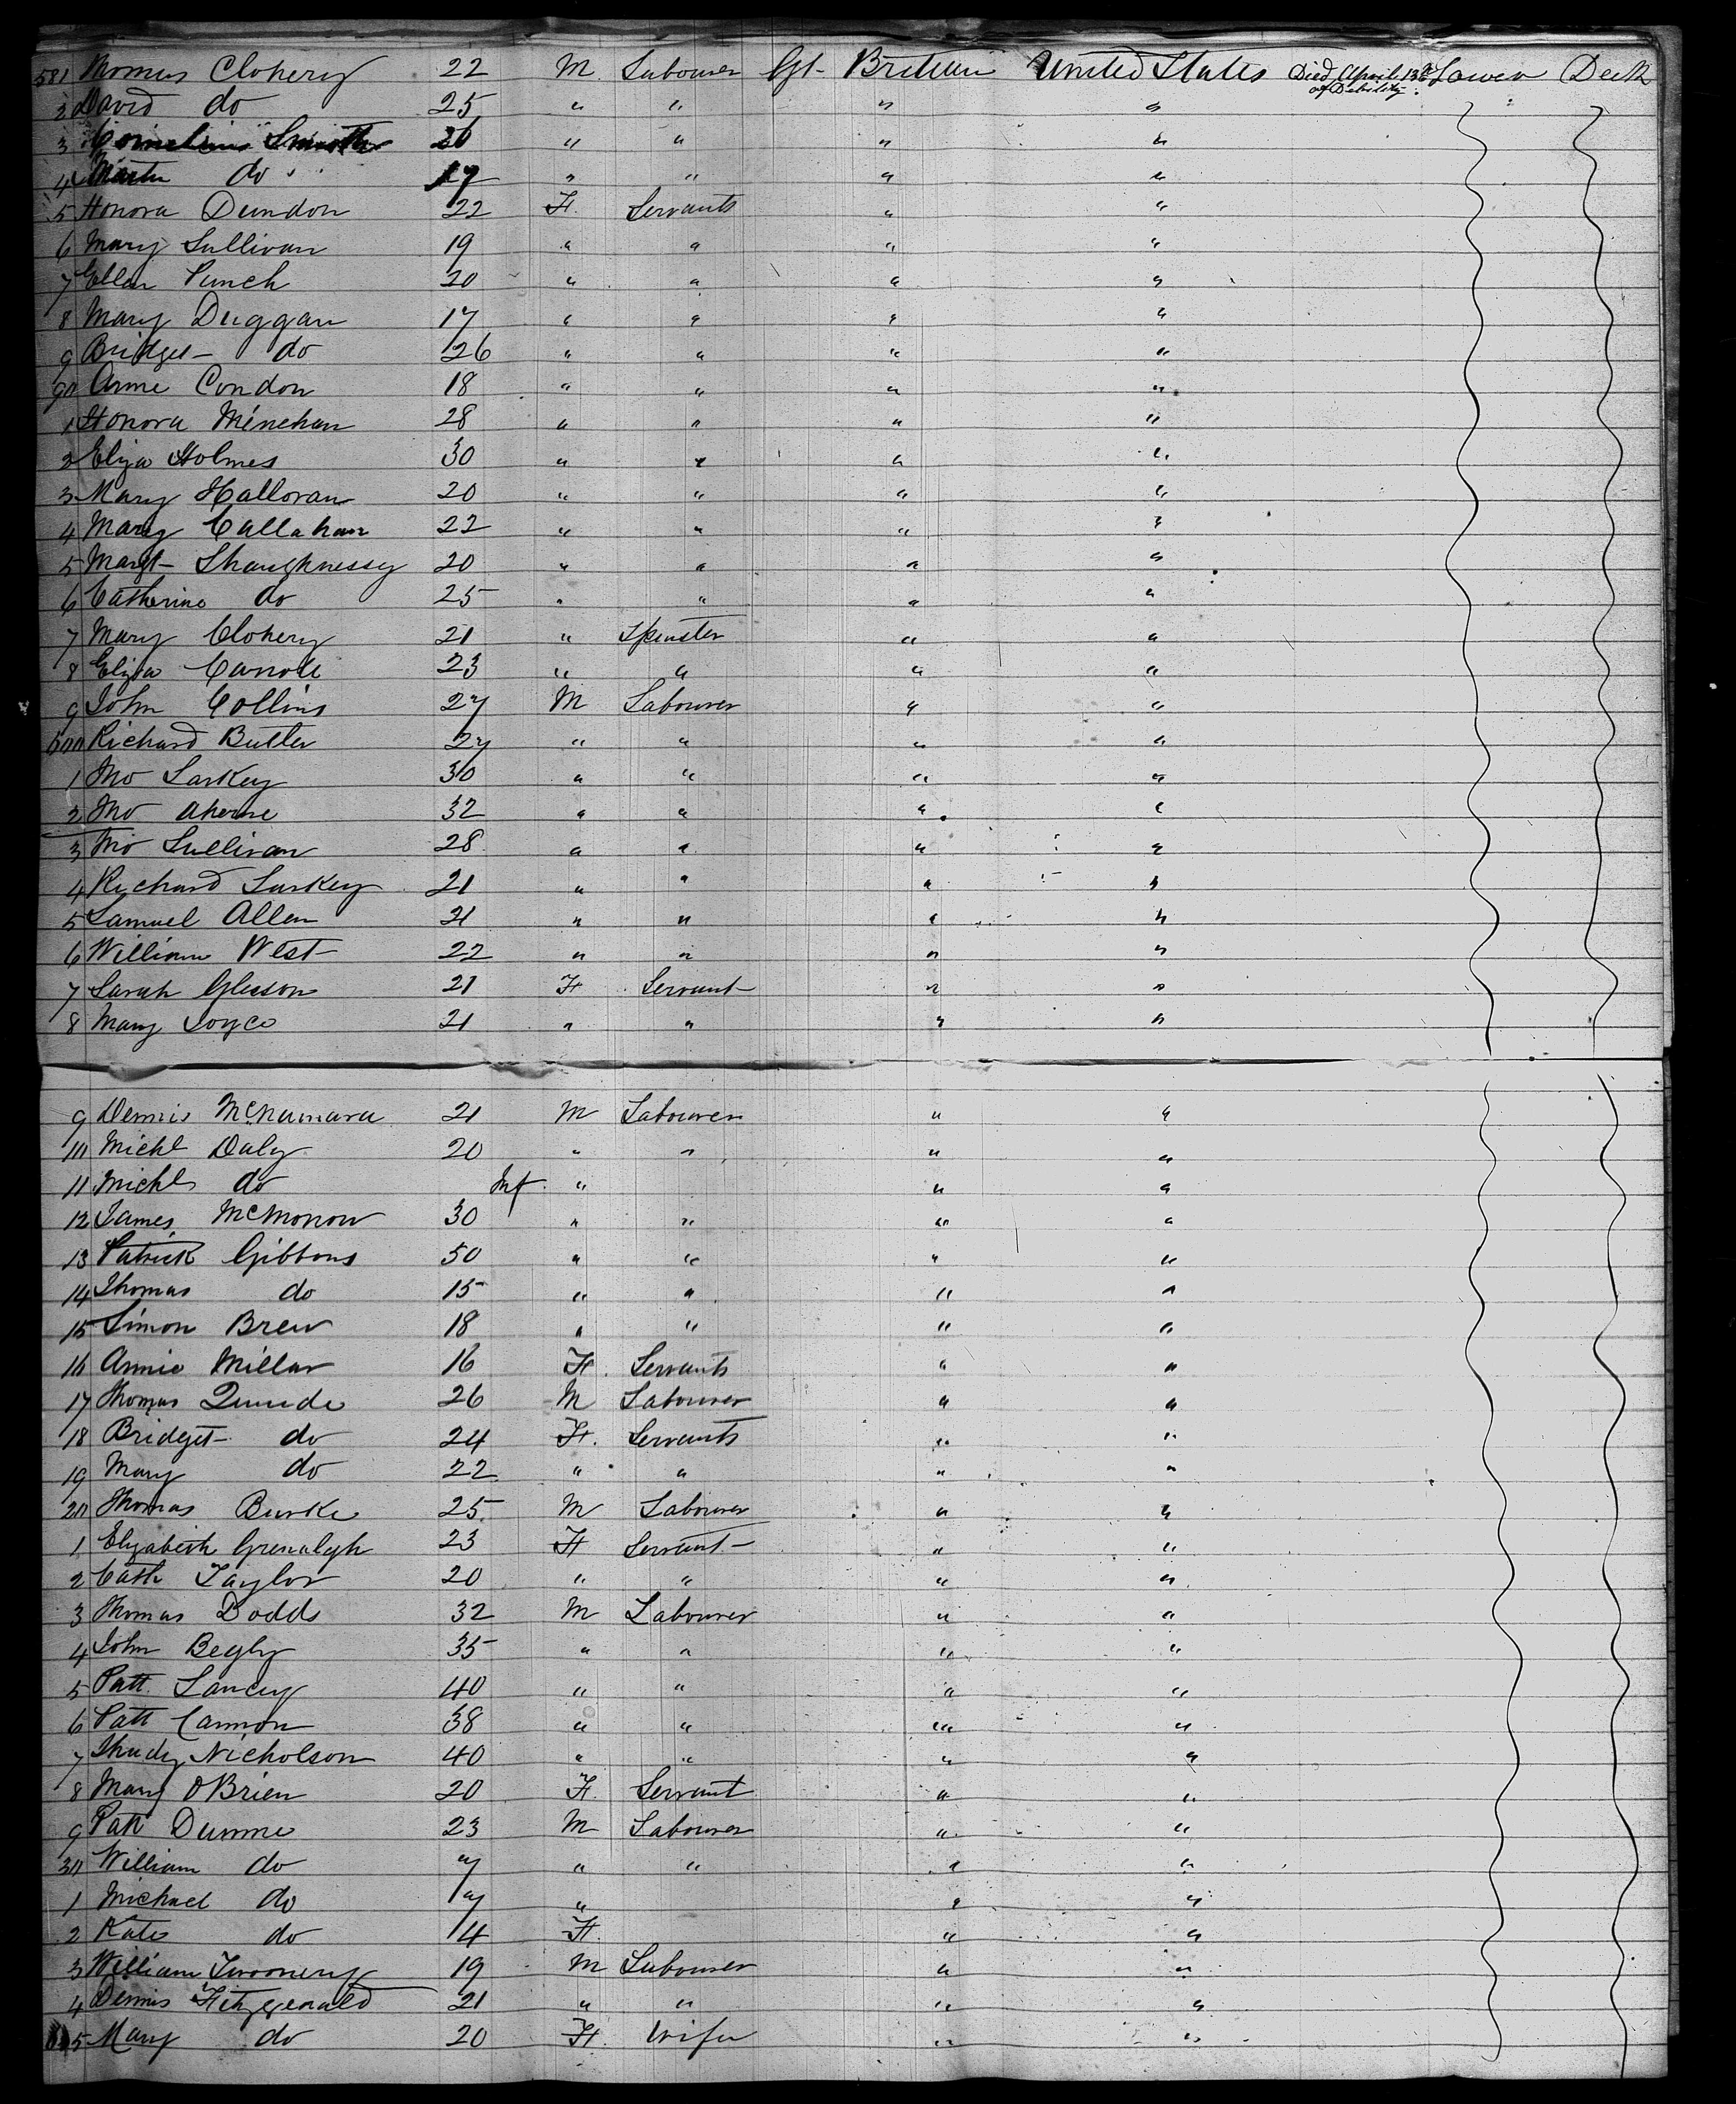 581 Thomas Clohery 22 M Labourer Gt- Britain United States Died April 13th of Debility. Lower Deck
2 David do 25 " " " "
3 Cornelius Smith 26 " " " "
4 Martin do 17 " " " "
5 Honora Dundon 22 F. Servants " "
6 Mary Sullivan 19 " " " "
7 Ellen Punch 20 " " " "
8 Mary Duggan 17 " " " "
9 Bridget do 26 " " " "
90 Anne Condon 18 " " " "
1 Honora Minehan 28 " " " "
2 Eliza Holmes 30 " " " "
3 Mary Halloran 20 " " " "
4 Mary Callahan 22 " " " "
5 Margt Shaughnessy 20 " " " "
6 Catherine do 25 " " " "
7 Mary Clohery 21 " Spinster " "
8 Eliza Carroll 23 " " " "
9 John Collins 27 M Labourer " "
600 Richard Butler 27 " " " "
1 Jno Larkey 30 " " " "
2 Jno Aherne 32 " " " "
3 Jno Sullivan 28 " " " "
4 Richard Larkey 21 " " " "
5 Samuel Allen 21 " " " "
6 William West 22 " " " "
7 Sarah Gleeson 21 F Servant " "
8 Mary Joyce 21 " " " "
9 Dennis McNamara 21 M Labourer " "
10 Michl Daly 20 " " " "
11 Michl do Inf " " "
12 James McMonow 30 " " " "
13 Patrick Gibbons 50 " " " "
14 Thomas do 15 " " " "
15 Simon Brew 18 " " " "
16 Annie Millar 16 F. Servants " "
17 Thomas 26 M Labourer " "
18 Bridget do 24 F. Servants " "
19 Mary do 22 " " " "
20 Thomas Burke 25 M Labourer " "
1 Elizabeth 23 F Servant " "
2 Cath Taylor 20 " " " "
3 Thomas Dodds 32 M Labourer " "
4 John Begly 35 " " " "
5 Patt Lancey 40 " " " "
6 Patt Cannon 38 " " " "
7 Thady Nicholson 40 " " " "
8 Mary OBrien 20 F. Servant " "
9 Patt Dunne 23 M Labourer " "
30 William do " " " "
1 Michael do " " "
2 Kate do 14 F. " "
3 William Twoonery 19 M Labourer " "
4 Dennis Fitzgerald 21 " " " "
5 Mary do 20 F. Wife " "